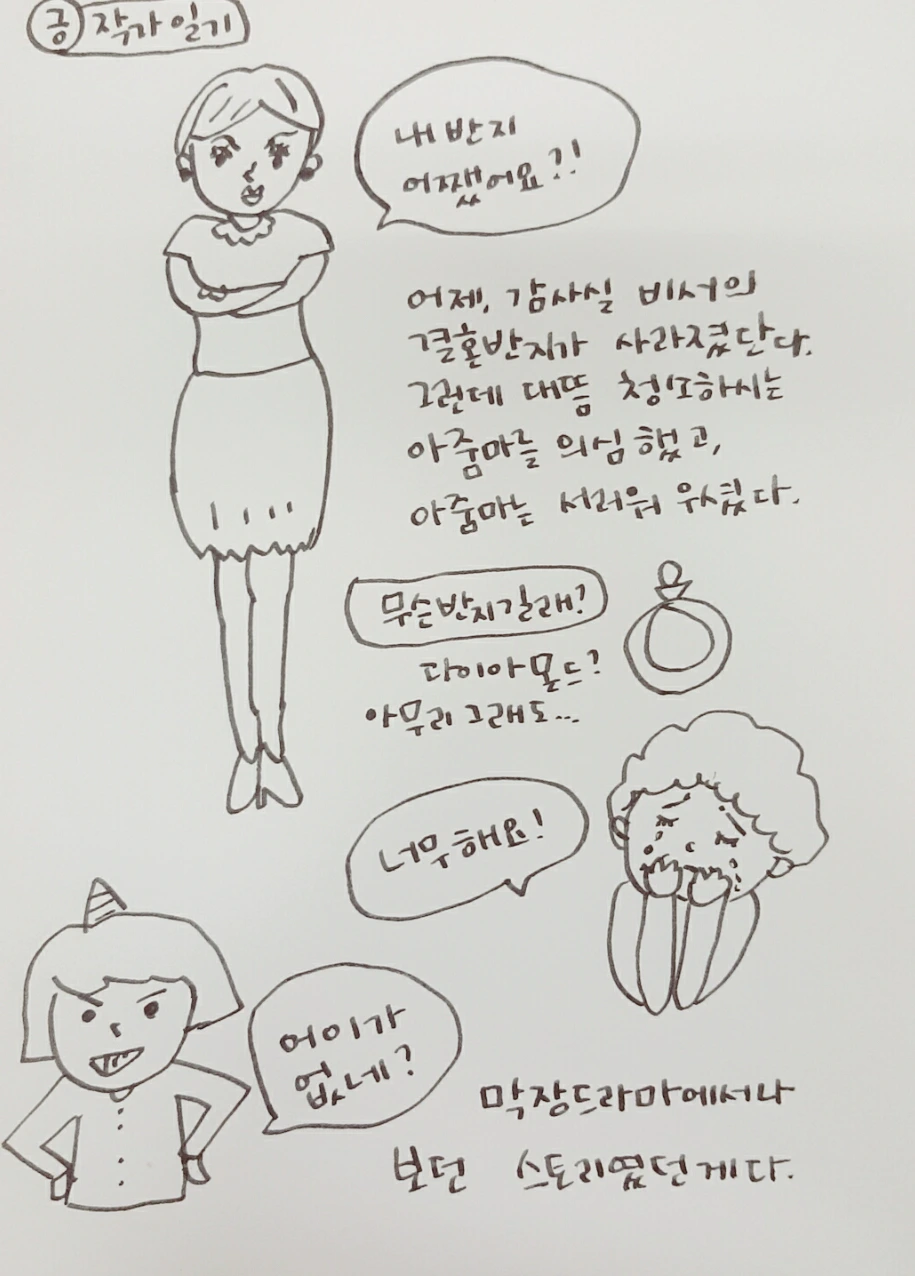 금 작가일기
내 반지
어쨌어요?!
어제, 감사실 비서의
결혼반지가 사라졌단다.
그런데 대뜸 청소하시는
아줌마를 의심했고,
아줌마는 서러워 우셨다.
무슨반지길래?
다이아몬드?
아무리 그래도...
너무해요!
어이가
없네?
막장드라마에서나
보던 스토리였던게다.